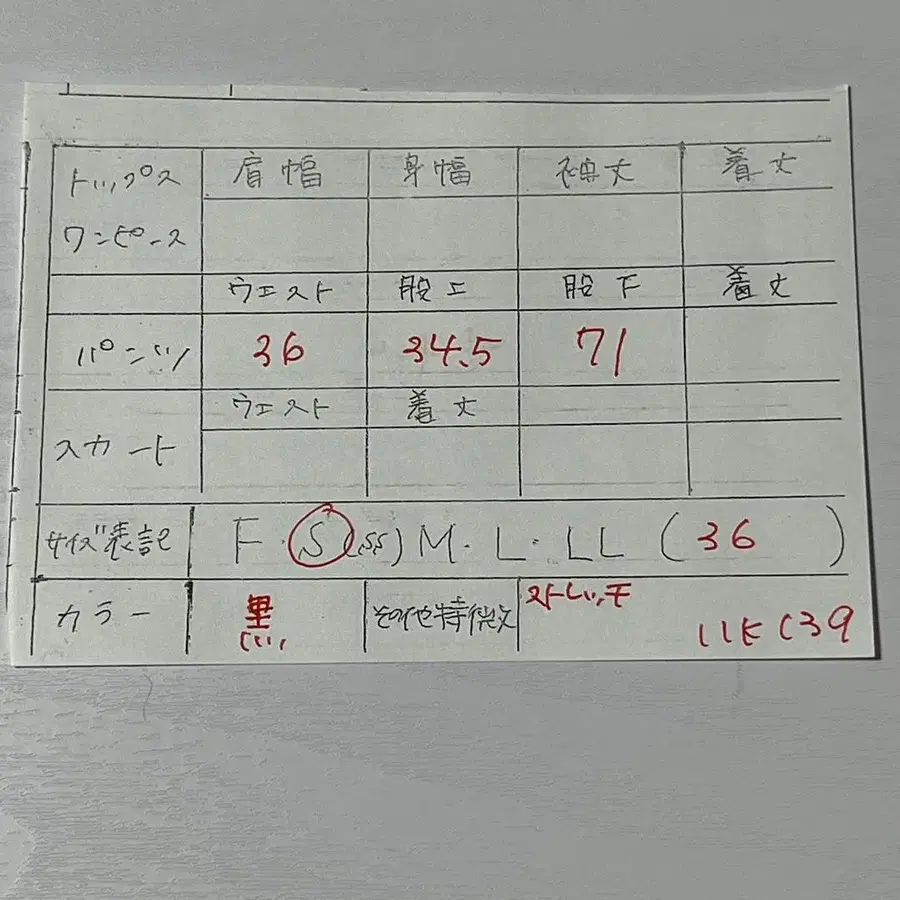 トップス 肩幅 身幅 袖丈 着丈
ワンピース
ウエスト 股上 股下 着丈
パンツ 36 34.5 71
ウエスト 着丈
スカート
サイズ表記 F・S(SS)M・L・LL(36)
カラー 黒 その他特徴 ストレッチ
11KC39